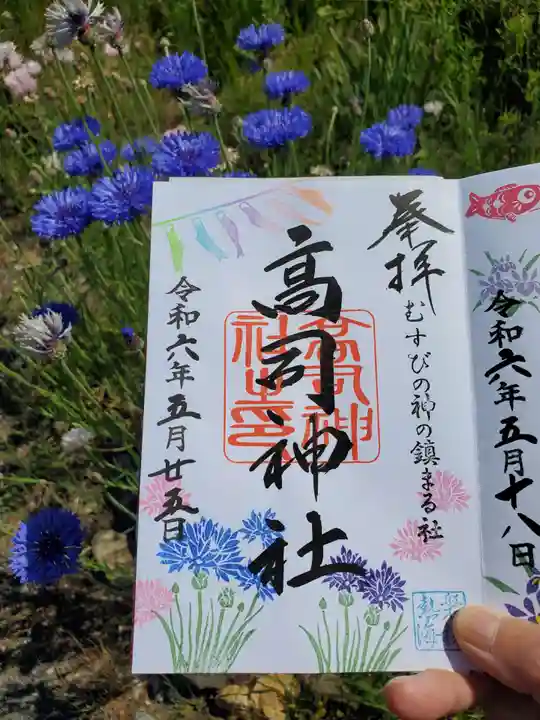 奉拝
むすびの神の鎮まる社
高司神社
令和六年五月廿五日
令和六年五月十八日